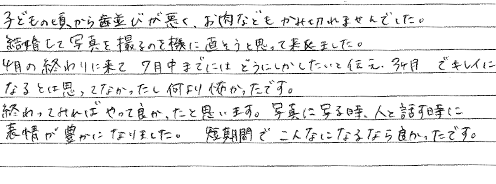 子どもの頃から歯並びが悪く、お肉などもかみ切れませんでした。
結婚して写真を撮るので機に直そうと思って来院ました。
4月の終わりに来て 7月中までにはどうにかしたいと伝え、3ヶ月 でキレイに
なるとは思ってなかったし何より怖かったです。
終わってみればやって良かったと思います。写真に写る時、人と話す時に
表情が豊かになりました。 短期間でこんなになるなら良かったです。